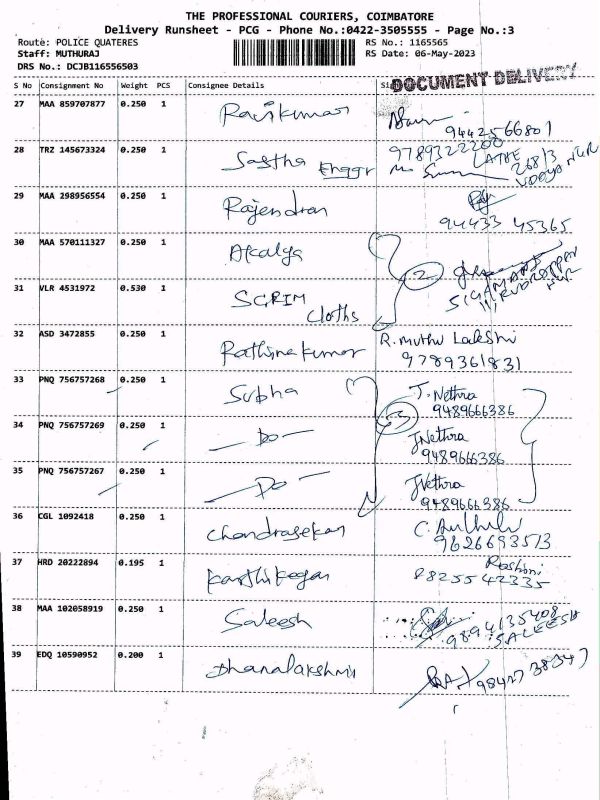 THE PROFESSIONAL COURIERS, COIMBATORE
Delivery Runsheet - PCG - Phone No.:0422-3505555 - Page No.:3
Route: POLICE QUATERES
RS No.: 1165565
Staff: MUTHURAJ
RS Date: 06-May-2023
DRS No.: DCJB116556503
DOCUMENT DELIVERY
S No Consignment No Weight PCS Consignee Details
27 MAA 859707877 0.250 1 Ravikumar
9442566801
28 TRZ 145673324 0.250 1 Sastha Enggr
9789322200
LATHE
268/3
29 MAA 298956554 0.250 1 Rajendran
94433 45365
30 MAA 570111327 0.250 1 Akalya
2
31 VLR 4531972 0.530 1 SGRIM Cloths
32 ASD 3472855 0.250 1 Rathinakumar R. Muthu Lakshmi
9789361831
33 PNQ 756757268 0.250 1 Subha J. Nethra
9489666386
3
34 PNQ 756757269 0.250 1 — Do — J Nethra
9489666386
35 PNQ 756757267 0.250 1 — Do — J Nethra
9489666386
36 CGL 1092418 0.250 1 Chandrasekar
9626693513
37 HRD 20222894 0.195 1 Karthikeyan Roshini
8825542335
38 MAA 102058919 0.250 1 Saleesh
9894135408
SALEESH
39 EDQ 10590952 0.200 1 Dhanalakshmi
98427 38347